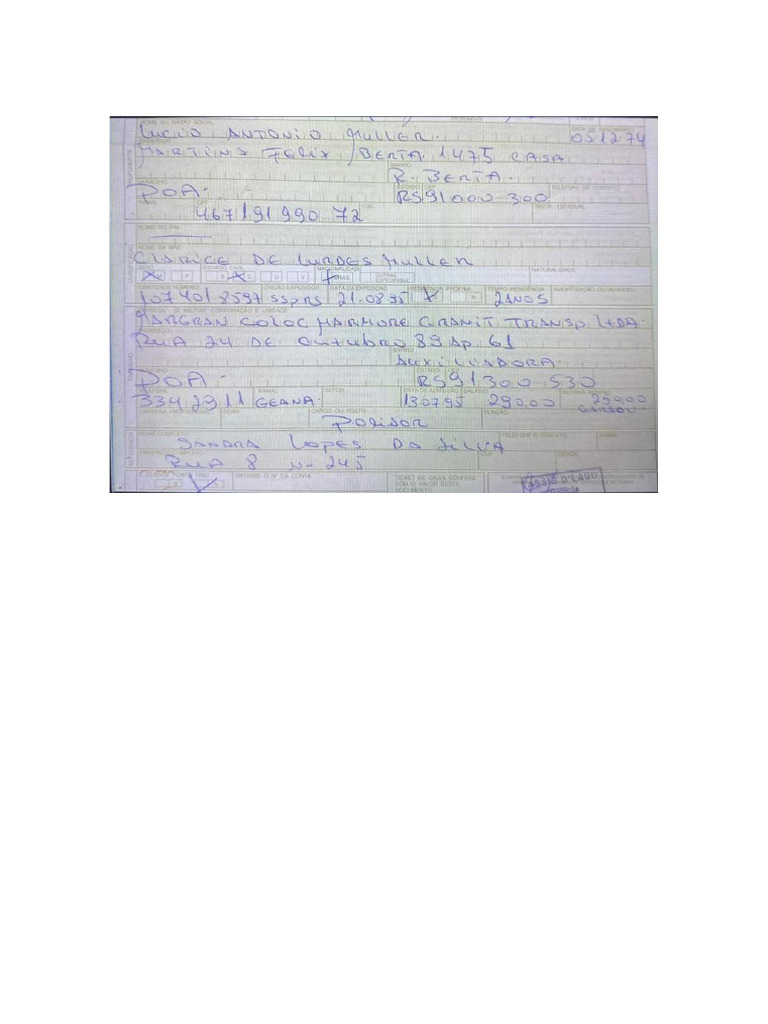 NOME OU RAZÃO SOCIAL
LUCIO ANTONIO MULLER. 051274
ENDEREÇO
MARTINS FELIX BERTA 1475 CASA
BAIRRO
R. BERTA.
ESTADO CEP TELEFONE DE CONTATO
POA. RS 91000-300
CPF CGC INSCR. ESTADUAL
467191990-72
NOME DO PAI
NOME DA MÃE
CLARICE DE LURDES MULLER
SEXO ESTADO CIVIL NACIONALIDADE NATURALIDADE
X X X BRAS.
IDENTIDADE NÚMERO ÓRGÃO EXPEDIDOR DATA DA EXPEDIÇÃO RESIDÊNCIA PRÓPRIA TEMPO RESIDÊNCIA
1074018597 SSPRS 21.08.95 X 21 NOS
MARGRAN COLOC MARMORE GRANIT TRANSP. LTDA.
RUA 24 DE OUTUBRO 83 AP. 61
BAIRRO
AUXILIADORA.
ESTADO CEP
POA. RS 91300-530
TELEFONE RAMAL SETOR DATA DA ADMISSÃO SALÁRIO
334.2911 GEANA. 130795 290.00 290,00
CARGO OU POSTO FUNÇÃO
POLIDOR
NOME COMPLETO TELEFONE P/ CONTATO RAMAL
SANDRA LOPES DA SILVA
ENDEREÇO COMPLETO CIDADE
RUA 8 N- 245
INFORME O Nº DA CONTA TICKET DE CAIXA CONFERE
COM O VALOR DESTE
DOCUMENTO